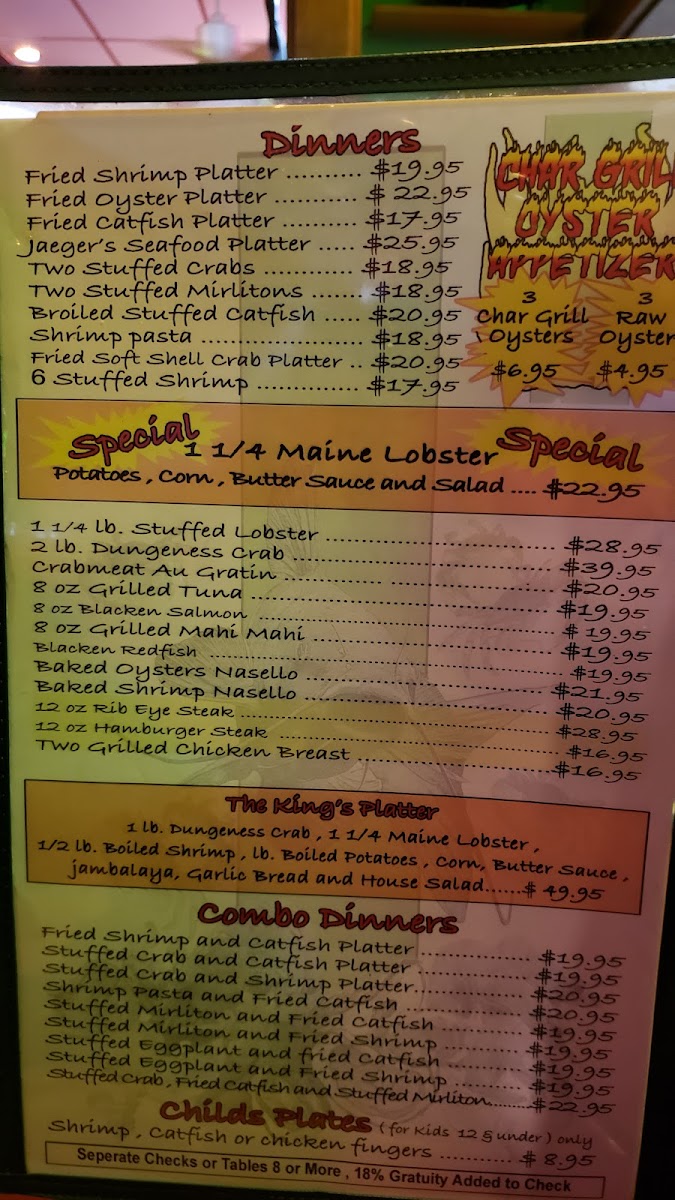 Dinners
Fried Shrimp Platter .......... $19.95
Fried Oyster Platter ........... $ 22.95
Fried Catfish Platter .......... $17.95
Jaeger's Seafood Platter ..... $25.95
Two Stuffed Crabs ............ $18.95
Two Stuffed Mirlitons ....... $18.95
Broiled Stuffed Catfish ..... $20.95
Shrimp pasta ..................... $18.95
Fried Soft Shell Crab Platter .. $20.95
6 Stuffed Shrimp .............. $17.95
CHAR GRILL
OYSTER
APPETIZER
3
Char Grill
Oysters
$6.95
3
Raw
Oyster
$4.95
Special
1 1/4 Maine Lobster
Special
Potatoes , Corn , Butter Sauce and Salad .... $22.95
1 1/4 lb. Stuffed Lobster ................................ $28.95
2 lb. Dungeness Crab .................................... $39.95
Crabmeat Au Gratin ..................................... $20.95
8 oz Grilled Tuna .......................................... $19.95
8 oz Blacken Salmon .................................... $ 19.95
8 oz Grilled Mahi Mahi ................................. $19.95
Blacken Redfish ............................................ $19.95
Baked Oysters Nasello ................................. $21.95
Baked Shrimp Nasello .................................. $20.95
12 oz Rib Eye Steak ...................................... $28.95
12 oz Hamburger Steak ................................ $16.95
Two Grilled Chicken Breast .......................... $16.95
The King's Platter
1 lb. Dungeness Crab , 1 1/4 Maine Lobster ,
1/2 lb. Boiled Shrimp , lb. Boiled Potatoes , Corn, Butter Sauce ,
jambalaya, Garlic Bread and House Salad......$ 49.95
Combo Dinners
Fried Shrimp and Catfish Platter .............. $19.95
Stuffed Crab and Catfish Platter .............. $19.95
Stuffed Crab and Shrimp Platter.............. $20.95
Shrimp Pasta and Fried Catfish ............... $20.95
Stuffed Mirliton and Fried Catfish ........... $19.95
Stuffed Mirliton and Fried Shrimp .......... $19.95
Stuffed Eggplant and fried Catfish .......... $19.95
Stuffed Eggplant and Fried Shrimp ......... $19.95
Stuffed Crab , Fried Catfish and Stuffed Mirliton......... $22.95
Childs Plates ( for Kids 12 & under ) only
Shrimp , Catfish or chicken fingers .......... $ 8.95
Seperate Checks or Tables 8 or More , 18% Gratuity Added to Check